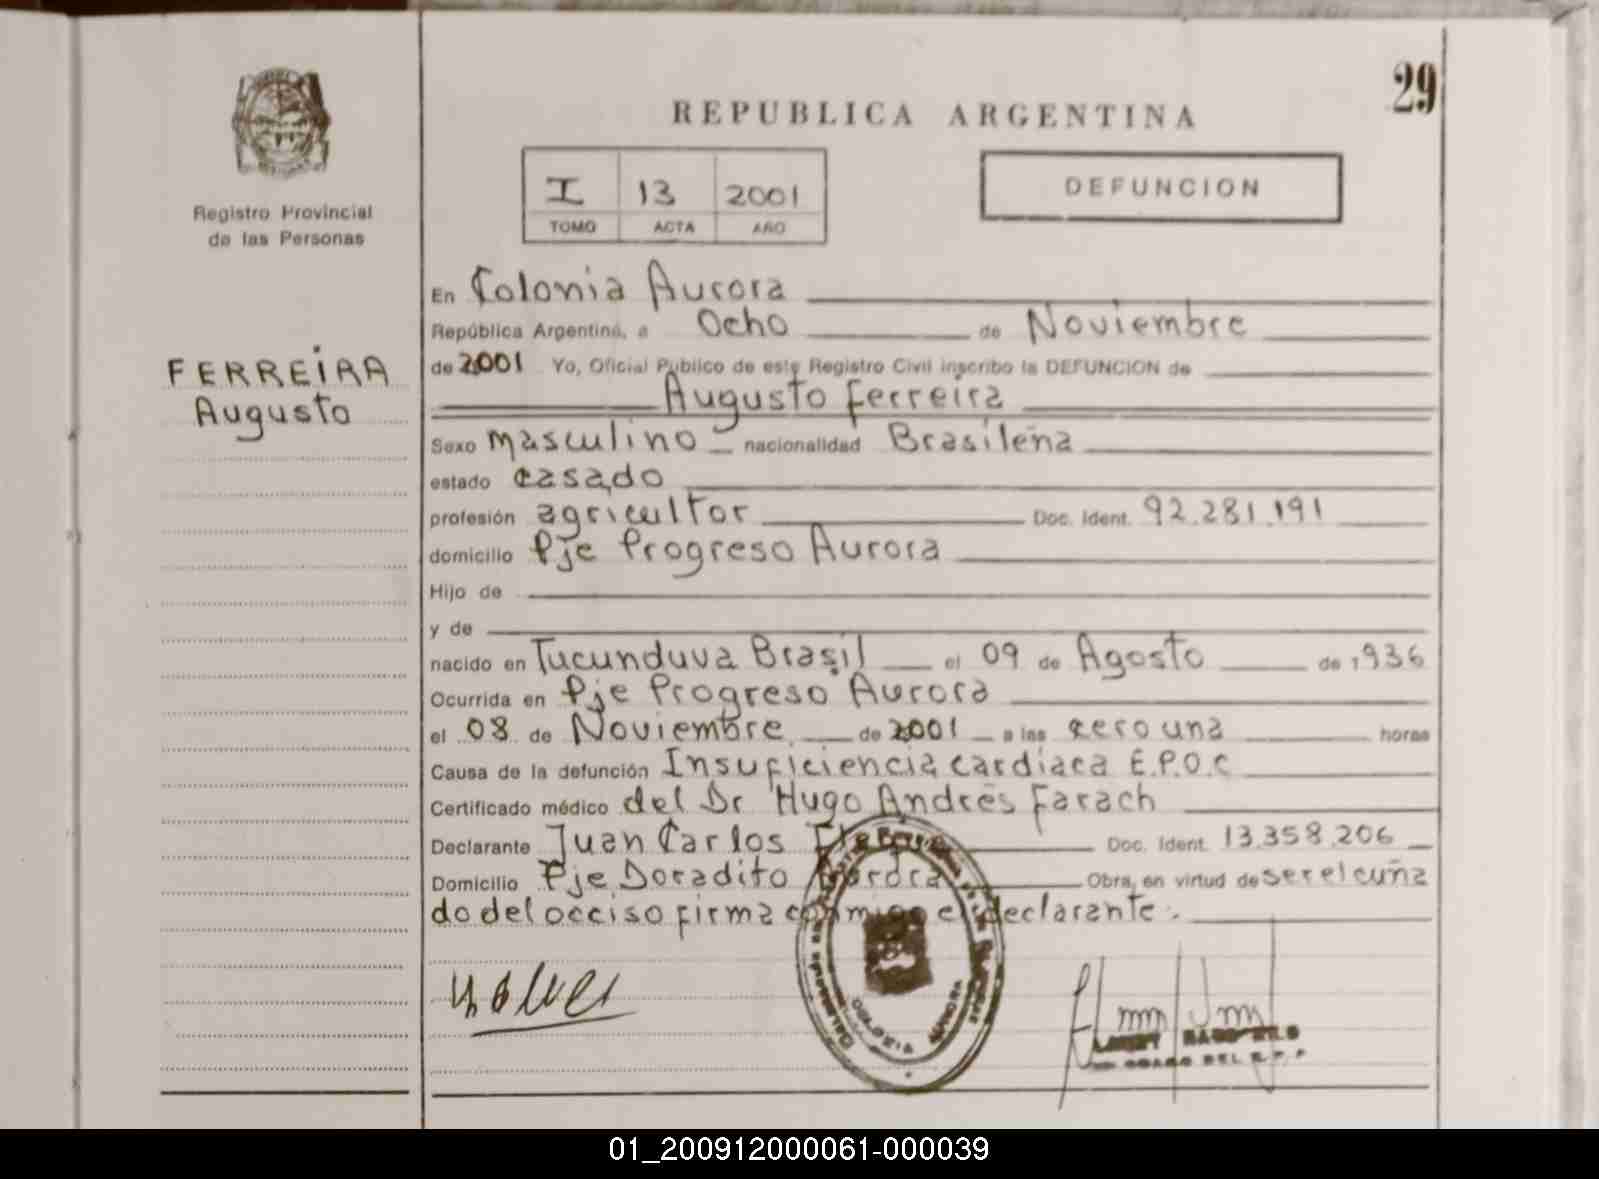 29
REPUBLICA ARGENTINA
I 13 2001
TOMO ACTA AÑO
DEFUNCION
Registro Provincial
de las Personas
FERREIRA
Augusto
En Colonia Aurora
República Argentina, a Ocho de Noviembre
de 2001 Yo, Oficial Público de este Registro Civil inscribo la DEFUNCION de
Augusto Ferreira
Sexo masculino nacionalidad Brasileña
estado casado
profesión agricultor Doc. Ident. 92.281.191
domicilio Pje Progreso Aurora
Hijo de
y de
nacido en Tucunduva Brasil el 09 de Agosto de 1936
Ocurrida en Pje Progreso Aurora
el 08 de Noviembre de 2001 a las cero una horas
Causa de la defunción Insuficiencia cardíaca E.P.O.C
Certificado médico del Dr Hugo Andrés Farach
Declarante Juan Carlos Doc. Ident. 13.358.206
Domicilio Pje Doradito Aurora Obra, en virtud de ser el cuña
do del occiso firma conmigo el declarante.
COLONIA AURORA
01_200912000061-000039